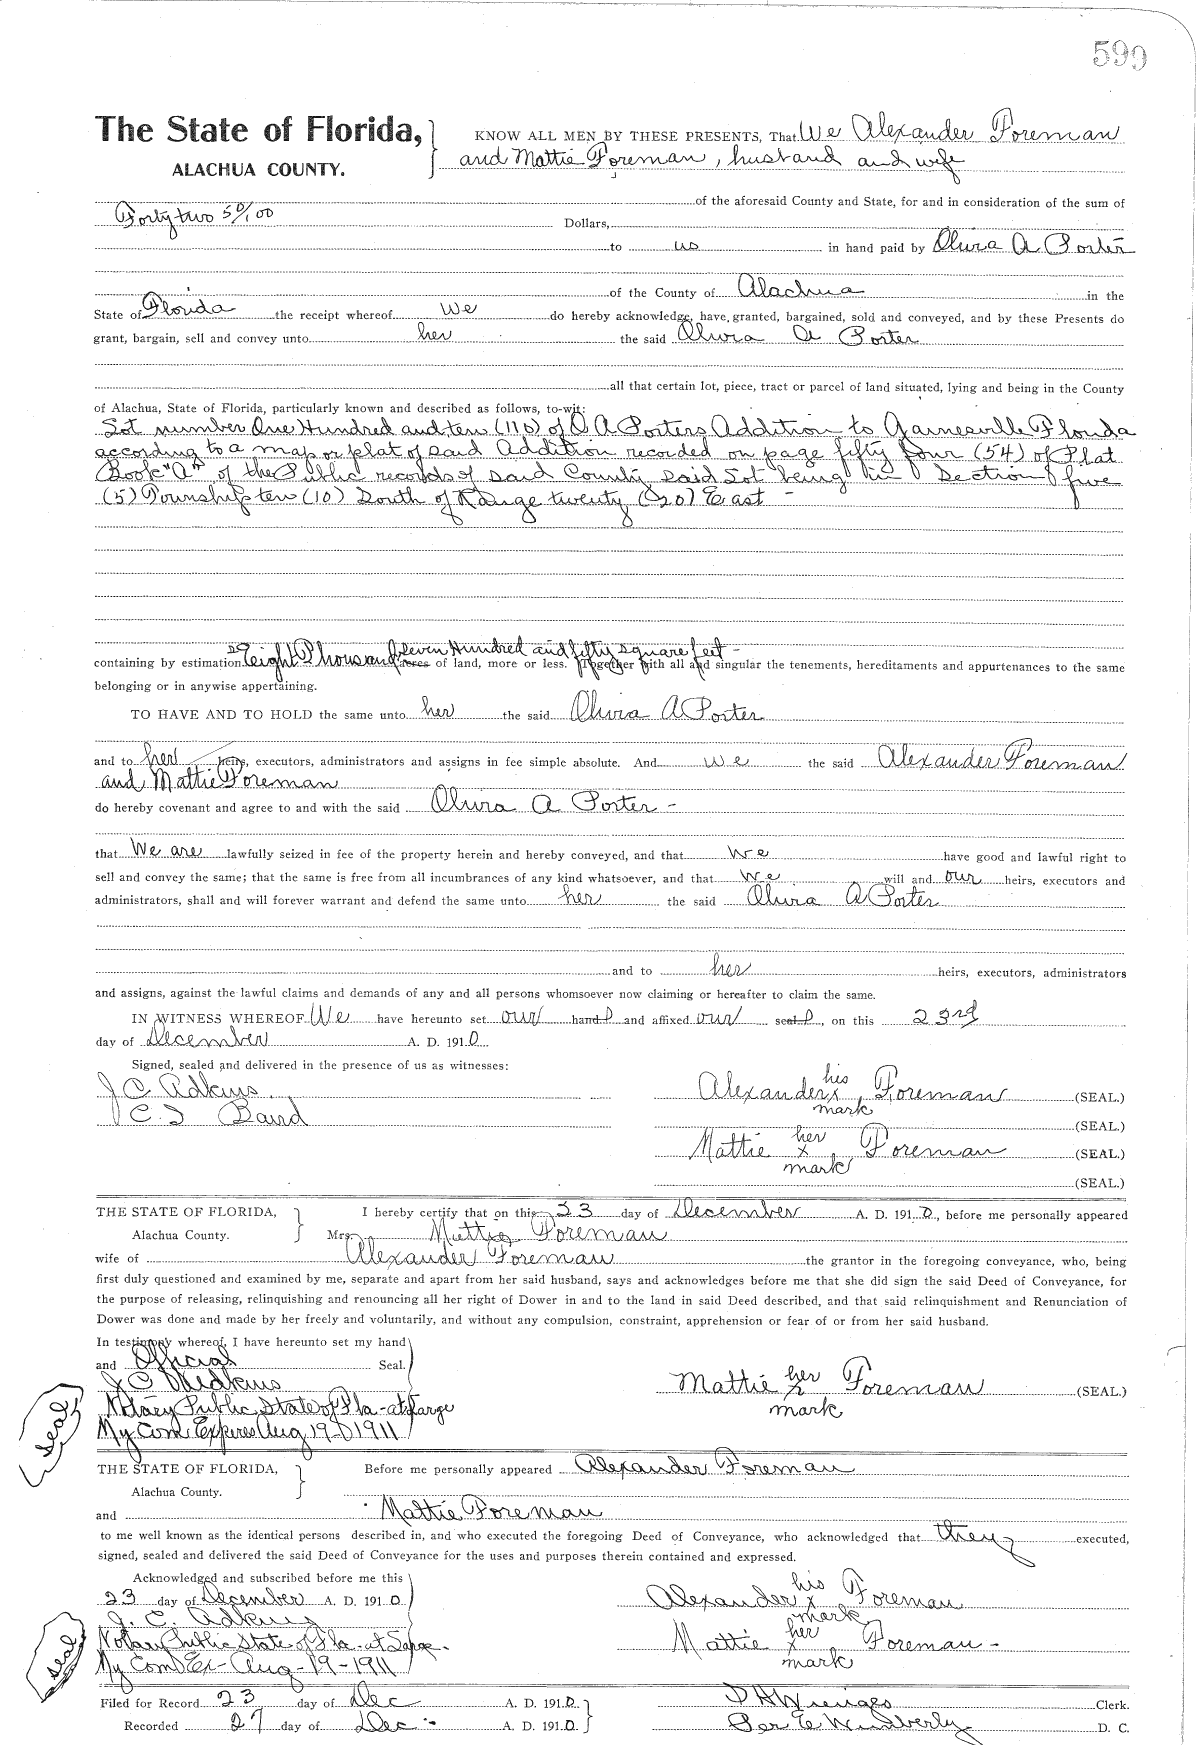 599
The State of Florida,
ALACHUA COUNTY.
KNOW ALL MEN BY THESE PRESENTS, That We Alexander Foreman
and Mattie Foreman, husband and wife
of the aforesaid County and State, for and in consideration of the sum of
Forty two 50/100 Dollars,
to us in hand paid by Olivia A Porter
of the County of Alachua in the
State of Florida the receipt whereof we do hereby acknowledge, have, granted, bargained, sold and conveyed, and by these Presents do
grant, bargain, sell and convey unto her the said Olivia A Porter
all that certain lot, piece, tract or parcel of land situated, lying and being in the County
of Alachua, State of Florida, particularly known and described as follows, to-wit:
Lot number One Hundred and ten (110) of O A Porters Addition to Gainesville Florida
according to a map or plat of said Addition recorded on page fifty four (54) of Plat
Book "A" of the Public records of said County said Lot being in Section five
(5) Township ten (10) South of Range twenty (20) East -
containing by estimation Eight Thousand seven Hundred and fifty square feet -
acres of land, more or less. Together with all and singular the tenements, hereditaments and appurtenances to the same
belonging or in anywise appertaining.
TO HAVE AND TO HOLD the same unto her the said Olivia A Porter
and to her heirs, executors, administrators and assigns in fee simple absolute. And we the said Alexander Foreman
and Mattie Foreman
do hereby covenant and agree to and with the said Olivia A Porter -
that We are lawfully seized in fee of the property herein and hereby conveyed, and that we have good and lawful right to
sell and convey the same; that the same is free from all incumbrances of any kind whatsoever, and that we will and our heirs, executors and
administrators, shall and will forever warrant and defend the same unto her the said Olivia A Porter
and to her heirs, executors, administrators
and assigns, against the lawful claims and demands of any and all persons whomsoever now claiming or hereafter to claim the same.
IN WITNESS WHEREOF We have hereunto set our hand s and affixed our seal s, on this 23rd
day of December A. D. 1910.
Signed, sealed and delivered in the presence of us as witnesses:
J C Adkins
C. I Baird
Alexander his x mark Foreman (SEAL.)
(SEAL.)
Mattie her x mark Foreman (SEAL.)
(SEAL.)
THE STATE OF FLORIDA,
Alachua County.
I hereby certify that on this 23 day of December A. D. 1910, before me personally appeared
Mrs. Mattie Foreman
wife of Alexander Foreman the grantor in the foregoing conveyance, who, being
first duly questioned and examined by me, separate and apart from her said husband, says and acknowledges before me that she did sign the said Deed of Conveyance, for
the purpose of releasing, relinquishing and renouncing all her right of Dower in and to the land in said Deed described, and that said relinquishment and Renunciation of
Dower was done and made by her freely and voluntarily, and without any compulsion, constraint, apprehension or fear of or from her said husband.
In testimony whereof, I have hereunto set my hand
and Official Seal.
J C Adkins
Notary Public State of Fla - at Large
My Com. Expires Aug 19 - 1911
seal
Mattie her x mark Foreman (SEAL.)
THE STATE OF FLORIDA,
Alachua County.
Before me personally appeared Alexander Foreman
and Mattie Foreman
to me well known as the identical persons described in, and who executed the foregoing Deed of Conveyance, who acknowledged that they executed,
signed, sealed and delivered the said Deed of Conveyance for the uses and purposes therein contained and expressed.
Acknowledged and subscribed before me this
23 day of December A. D. 1910
J. C. Adkins
Notary Public State of Fla - at Large -
My Com Ex - Aug - 19 - 1911
seal
Alexander his x mark Foreman
Mattie her x mark Foreman -
Filed for Record 23 day of Dec A. D. 1910.
Recorded 27 day of Dec - A. D. 1910.
Clerk.
Per E Wimberly D. C.